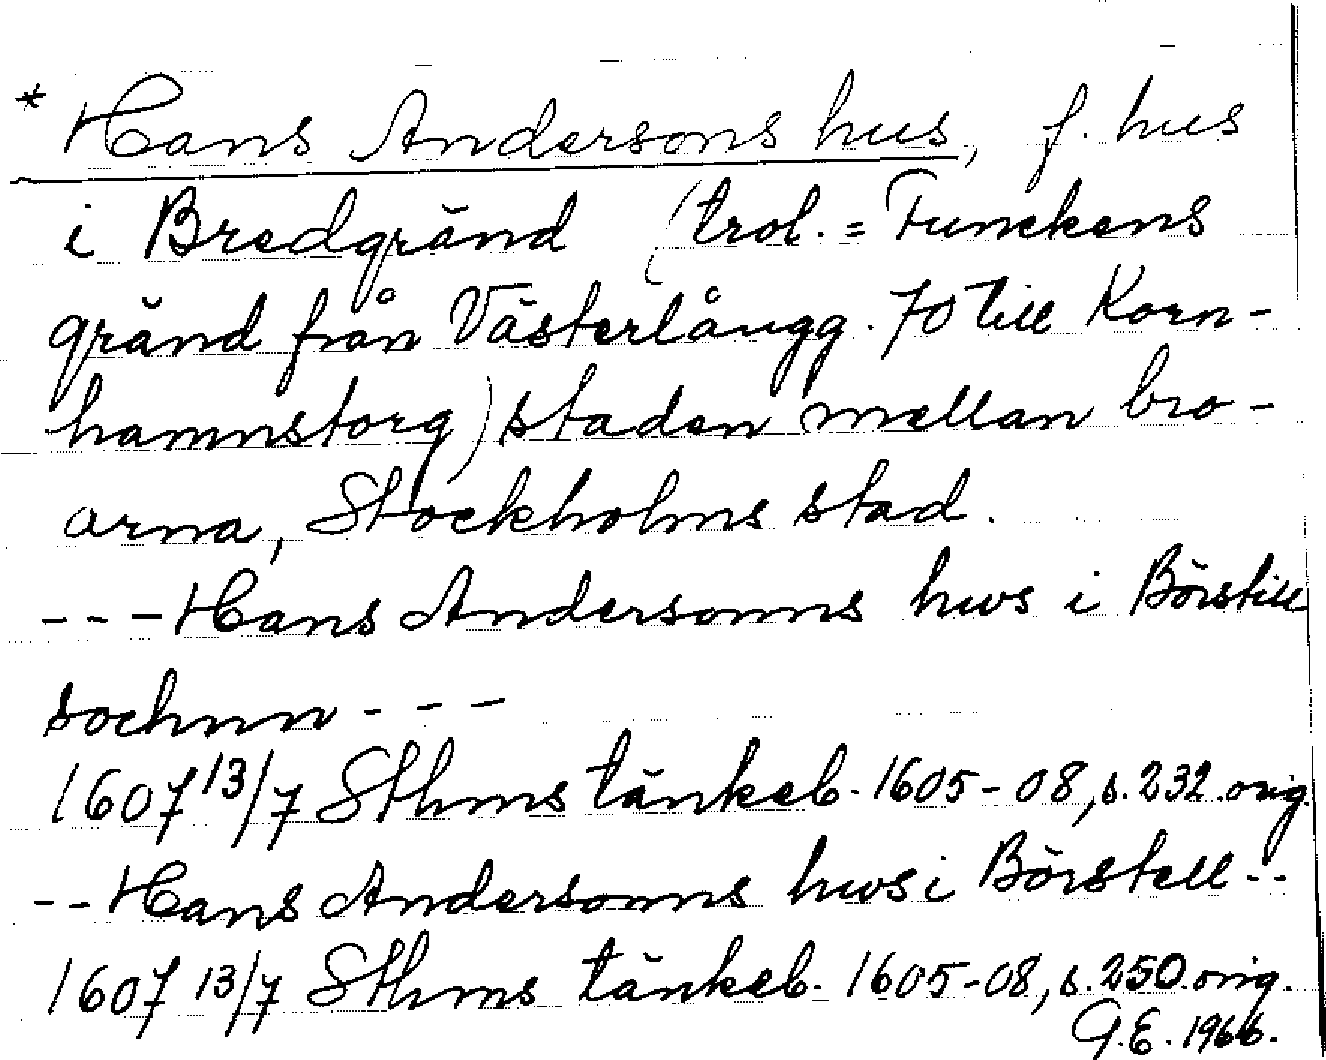 * Hans Andersons hus, f. hus
i Bredgränd (trol. = Funckens
gränd från Västerlångg. 70 till Korn-
hamnstorg) staden mellan bro-
arna, Stockholms stad.
- - - Hans Andersonns hws i Börstill
sochnn - - -
1607 13/7 Sthms tänkeb. 1605-08, s. 232. orig.
- - Hans Andersonns hws i Börstell - -
1607 13/7 Sthms tänkeb. 1605-08, s. 250. orig.
G.E. 1966.